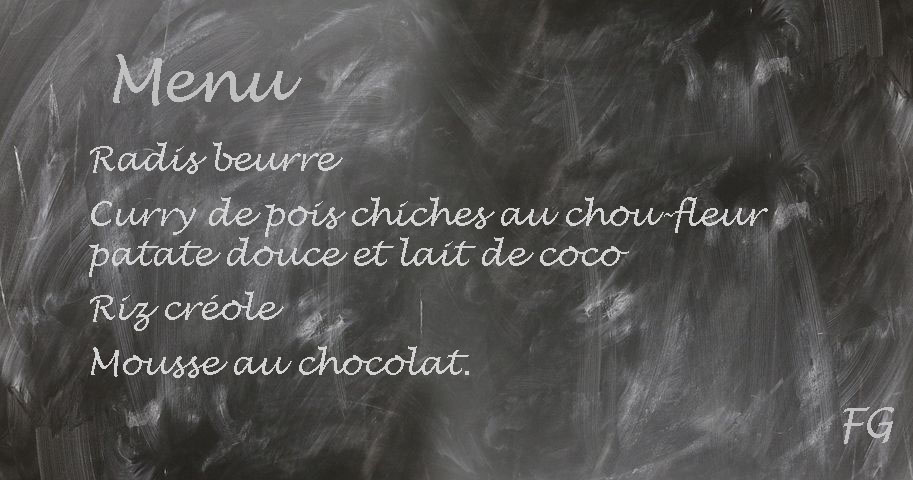 Menu
Radis beurre
Curry de pois chiches au chou-fleur
patate douce et lait de coco
Riz créole
Mousse au chocolat.
FG